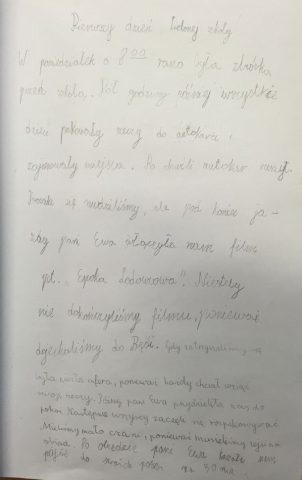 Pierwszy dzień Zielonej szkoły
W poniedziałek o 8⁰⁰ rano była zbiórka
przed szkołą. Pół godziny później wszystkie
dzieci pakowały rzeczy do autokaru i
zajmowały miejsca. Po chwili autokar ruszył.
Trochę się nudziliśmy, ale pod koniec ja-
zdy pani Ewa włączyła nam film
pt. "Epoka Lodowcowa". Niestety
nie dokończyliśmy filmu, ponieważ
dojechaliśmy do Gdy zatrzymaliśmy się
była mała afera, ponieważ każdy chciał wziąć
swoje rzeczy. pani Ewa przydzieliła nas do
pokoi. Następnie wszyscy zaczęli się rozpakowywać
Mieliśmy mało czasu, ponieważ musieliśmy iść na
obiad. Po obiedzie pani Ewa kazała nam
pójść do swoich pokoi na 30 min.